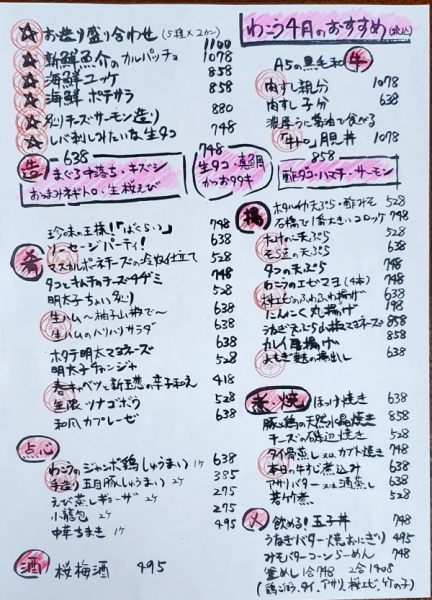 わこう4月のおすすめ(税込)
☆ お造り盛り合わせ(5種×2カン) 1100
☆ 新鮮魚介のカルパッチョ 1078
☆ 海鮮ユッケ 858
☆ 海鮮ポテサラ 858
☆ 炙りチーズサーモン造り 880
☆ レバ刺しみたいな生タコ 748
造 -638
まぐろ中落ち・キズシ
おつまみネギトロ・生桜えび
748
生タコ・真鯛
かつおタタキ
858
酢タコ・ハマチ・サーモン
A5の黒毛和牛
肉すし親分 1078
肉すし子分 638
濃厚うに醤油で食べる
「牛トロ」肝丼 1078
肴
珍味の王様!「ばくらい」 748
ソーセージパーティ! 638
マスカルポーネチーズの冷奴仕立て 528
タコとキムチのチーズチヂミ 748
明太子ちょい炙り 528
生ハム〜柚子山椒で〜 638
生ハムのハリハリサラダ 638
ホタテ明太マヨネーズ 528
明太子チャンジャ 638
春キャベツと新玉葱の辛子和え 418
無限ツナゴボウ 528
和風カプレーゼ 638
点心
わこうのジャンボ鶏しゅうまい 1ケ
手造り五目豚しゅうまい 2ケ 385
えび蒸しギョーザ 2ケ 275
小籠包 2ケ 275
中華ちまき 1ケ 495
酒 桜梅酒 495
揚
ホタルイカ天ぷら・酢みそ 528
石橋で1番大きいコロッケ 748
そら豆の天ぷら
タコの天ぷら 748
わこうのエビマヨ(4本) 748
桜エビのふわふわ揚げ
にんにく丸揚げ 198
カレイ唐揚げ 858
よもぎ麩の揚出し 638
煮・焼
ほっけ焼き 638
豚と鶏の天然水晶焼き 858
チーズの磯辺焼き 528
タイ骨蒸し又はカブト焼き 748
本日の牛すじ煮込み 638
アサリバター又は酒蒸し 638
若竹煮 528
〆
飲める!玉子丼 748
うなぎバター焼おにぎり 495
みそバターコーンらーめん 748
釜めし 1合748 2合1408
(鶏ごぼう、タイ、アサリ、桜エビ、竹の子)